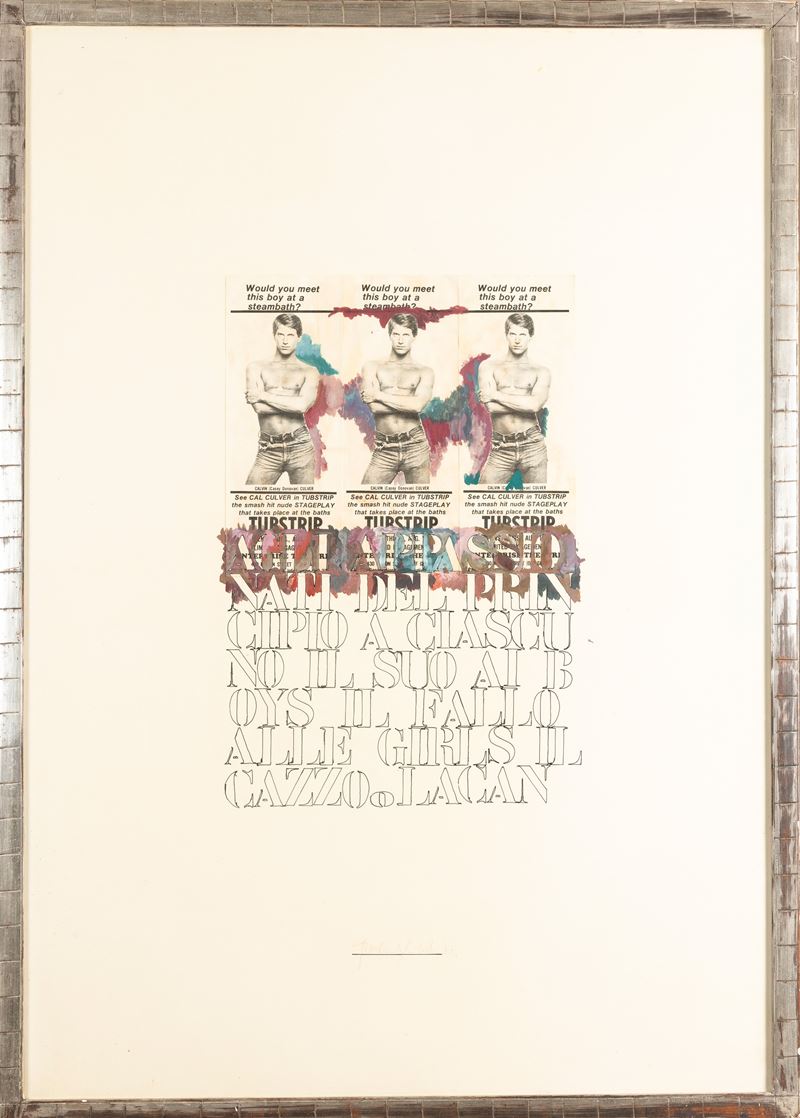 Would you meet this boy at a steambath?
Would you meet this boy at a steambath?
Would you meet this boy at a steambath?
CALVIN (Casey Donovan) CULVER
CALVIN (Casey Donovan) CULVER
CALVIN (Casey Donovan) CULVER
See CAL CULVER in TUBSTRIP
the smash hit nude STAGEPLAY
that takes place at the baths
TUBSTRIP
See CAL CULVER in TUBSTRIP
the smash hit nude STAGEPLAY
that takes place at the baths
TUBSTRIP
See CAL CULVER in TUBSTRIP
the smash hit nude STAGEPLAY
that takes place at the baths
TUBSTRIP
AGLI APPASSIO
NATI DEL PRIN
CIPIO A CIASCU
NO IL SUO AI B
OYS IL FALLO
ALLE GIRLS IL
CAZZO o LACAN